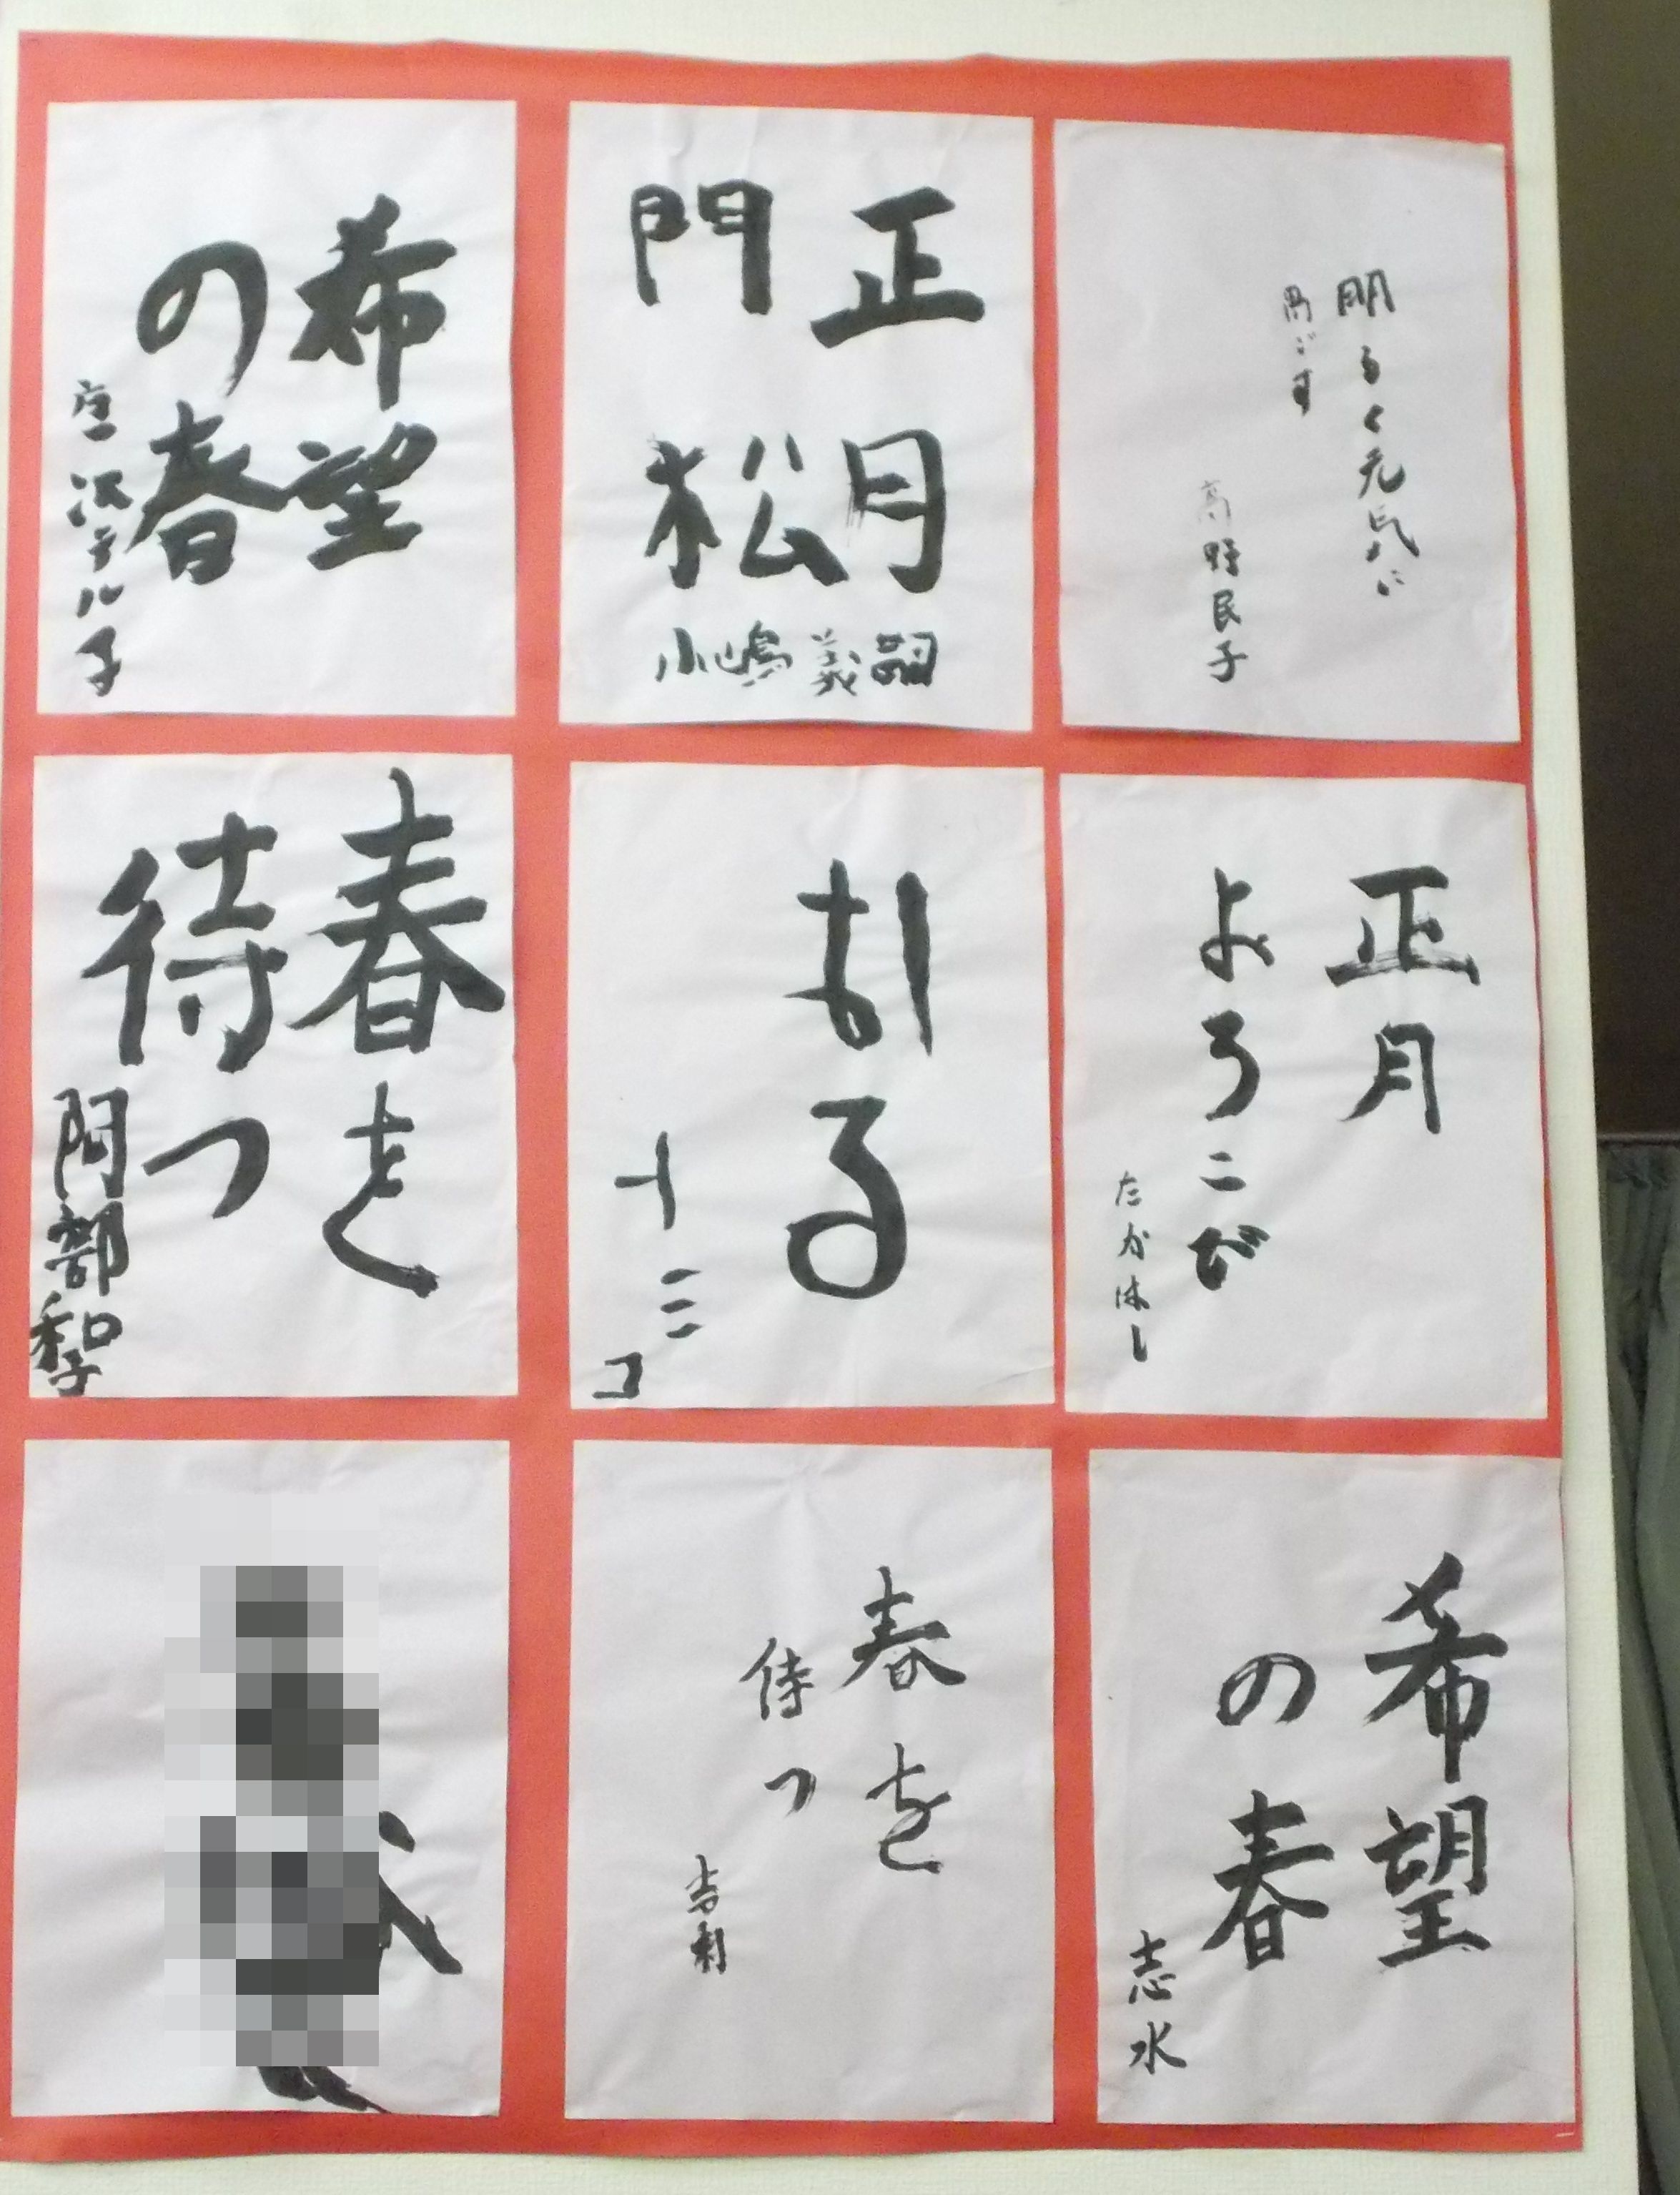 明るく元気に
過ごす
高野民子
正月
門松
小嶋義嗣
希望
の春
テル子
正月
よろこび
たかはし
はる
春を
待つ
阿部和子
希望
の春
志水
春を
待つ
吉利